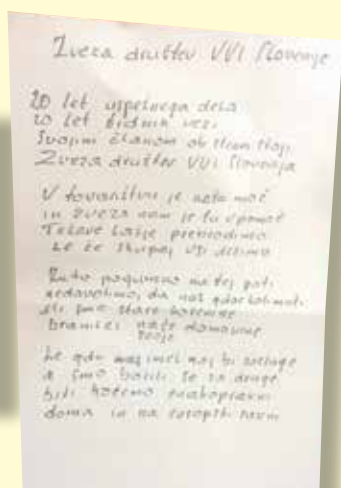 Zveza društev VVI Slovenije
20 let uspešnega dela
20 let trdnih vezi
Svojim članom ob strani stoji
Zveza društev VVI Slovenija
V tovarištvu je naša moč
in zveza nam je tu v pomoč
Težave lažje prebrodimo
če če skupaj vsi držimo
Zato pogumno na tej poti
nedovolimo, da nas kdor koli moti
smo stare korenine
branilci naše domovine
svoje
Le kdo
a smo borili se za druge
biti hočemo enakopravni
doma in na evropski ravni